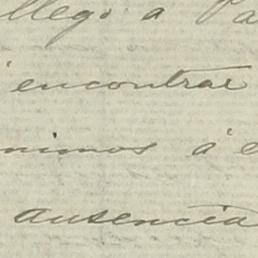 llegó a Pa
encontrar
nimos á e
ausencia